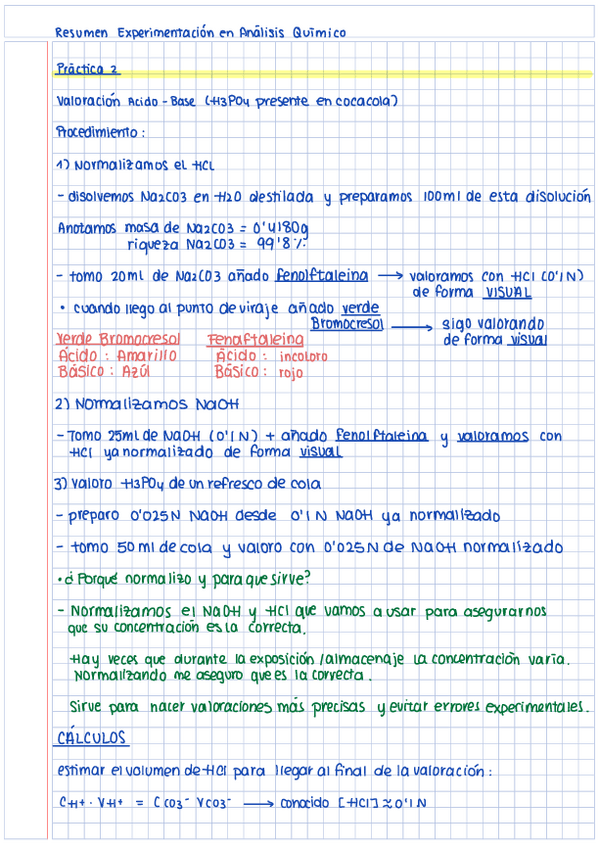 Resumen Experimentación en Análisis Químico
Práctica 2
Valoración Acido-Base (H3PO4 presente en cocacola)
Procedimiento:
1) Normalizamos el HCl
- disolvemos Na2CO3 en H2O destilada y preparamos 100ml de esta disolución
Anotamos masa de Na2CO3 = 0'4180g
riqueza Na2CO3 = 99'8%
- tomo 20ml de Na2CO3 añado fenolftaleina → valoramos con HCl (0'1N)
de forma VISUAL
• cuando llego al punto de viraje añado verde
Bromocresol → sigo valorando
de forma visual
Verde Bromocresol Fenaftaleina
Ácido: Amarillo Ácido: incoloro
Básico: Azúl Básico: rojo
2) Normalizamos NaOH
- Tomo 25ml de NaOH (0'1N) + añado fenolftaleina y valoramos con
HCl ya normalizado de forma visual
3) valoro H3PO4 de un refresco de cola
- preparo 0'025N NaOH desde 0'1N NaOH ya normalizado
- tomo 50ml de cola y valoro con 0'025N de NaOH normalizado
• ¿Porqué normalizo y para que sirve?
- Normalizamos el NaOH y HCl que vamos a usar para asegurarnos
que su concentración es la correcta.
Hay veces que durante la exposición/almacenaje la concentración varía.
Normalizando me aseguro que es la correcta.
Sirve para hacer valoraciones más precisas y evitar errores experimentales.
CÁLCULOS
estimar el volumen de HCl para llegar al final de la valoración:
CH+ · VH+ = CCO3- VCO3- → conocido [HCl] ≈ 0'1N